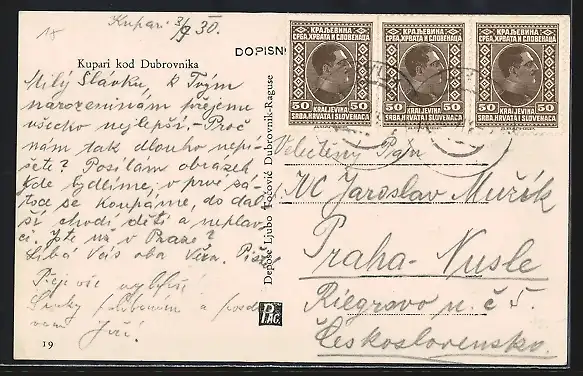 Kupari 3/9 30.
DOPISN
Kupari kod Dubrovnika
Milý Slávku, k Tvým
narozeninám přejemu
všecho nejlepší. - Proč
nám tak dlouho nepí-
šete? Posílám obrázek
kde bydlíme, v prvé zá-
toce se koupáme, do dal-
ší chodí děti a neplav-
ci. Jste už v Praze?
Líbá Vás oba Věra. Pište
Jiří.
19
Depose Ljubo Tošović Dubrovnik-Raguse
КРАЉЕВИНА
СРБА, ХРВАТА И СЛОВЕНАЦА
50 KRALJEVINA 50
SRBA, HRVATA I SLOVENACA
КРАЉЕВИНА
СРБА, ХРВАТА И СЛОВЕНАЦА
50 KRALJEVINA 50
SRBA, HRVATA I SLOVENACA
КРАЉЕВИНА
СРБА, ХРВАТА И СЛОВЕНАЦА
50 KRALJEVINA 50
SRBA, HRVATA I SLOVENACA
Velectěný Pan
JUC Jaroslav Mužík
Praha - Nusle
Riegrova u. č 5.
Československo.